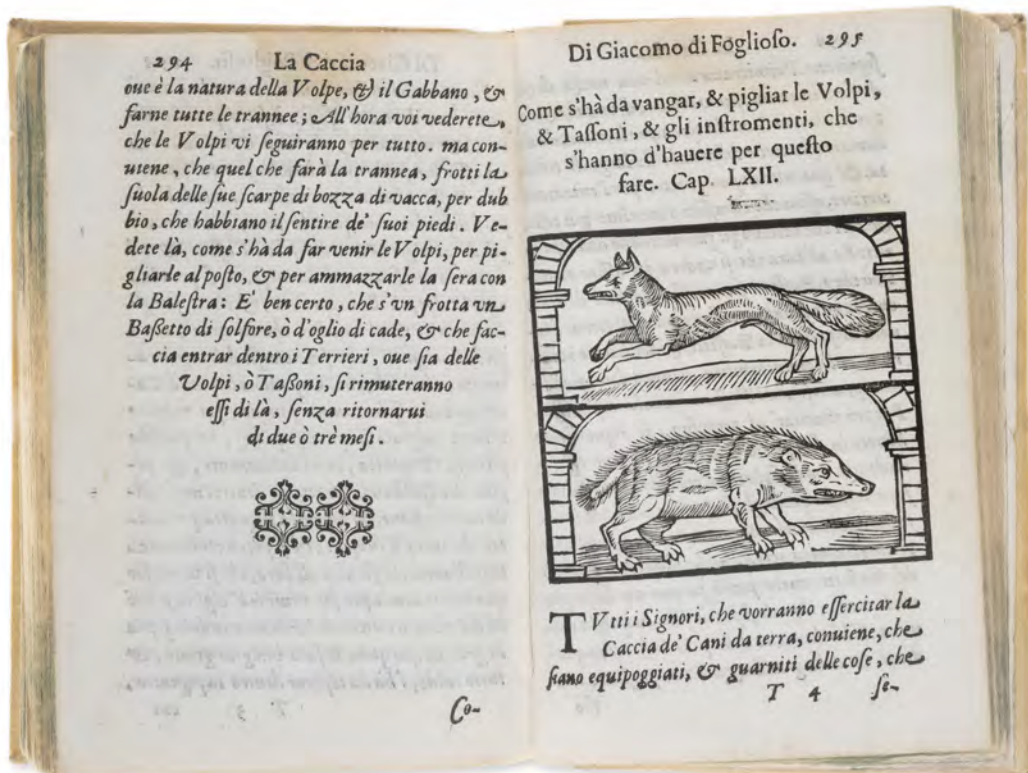 294 La Caccia
oue è la natura della Volpe, & il Gabbano, &
farne tutte le trannee; All'hora voi vederete,
che le Volpi vi ſeguiranno per tutto. ma con-
utene, che quel che farà la trannea, frotti la
ſuola delle ſue ſcarpe di bozza di vacca, per dub
bio, che habbiano il ſentire de' ſuoi piedi. Ve-
dete là, come s'hà da far venir le Volpi, per pi-
gliarle al poſto, & per ammazzarle la ſera con
la Baleſtra: E' ben certo, che s'vn frotta vn
Baßetto di ſolfore, ò d'oglio di cade, & che fac-
cia entrar dentro i Terrieri, oue ſia delle
Volpi, ò Taßoni, ſi rimuteranno
eſſi di là, ſenza ritornarui
di due ò trè meſi.
Co-
Di Giacomo di Foglioſo. 295
Come s'hà da vangar, & pigliar le Volpi,
& Taſſoni, & gli inſtromenti, che
s'hanno d'hauere per queſto
fare. Cap. LXII.
TVtti i Signori, che vorranno eſſercitar la
Caccia de' Cani da terra, conuiene, che
ſiano equipoggiati, & guarniti delle coſe, che
T 4 ſe-